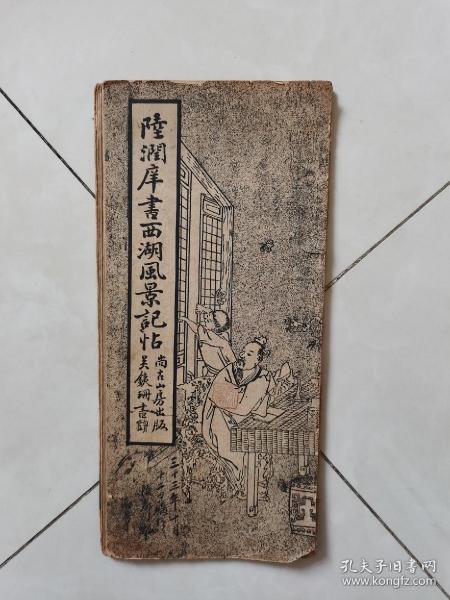 陸潤庠書西湖風景記帖
尚古山房出版
吳鉄珊書題
孔夫子旧书网
www.kongfz.com